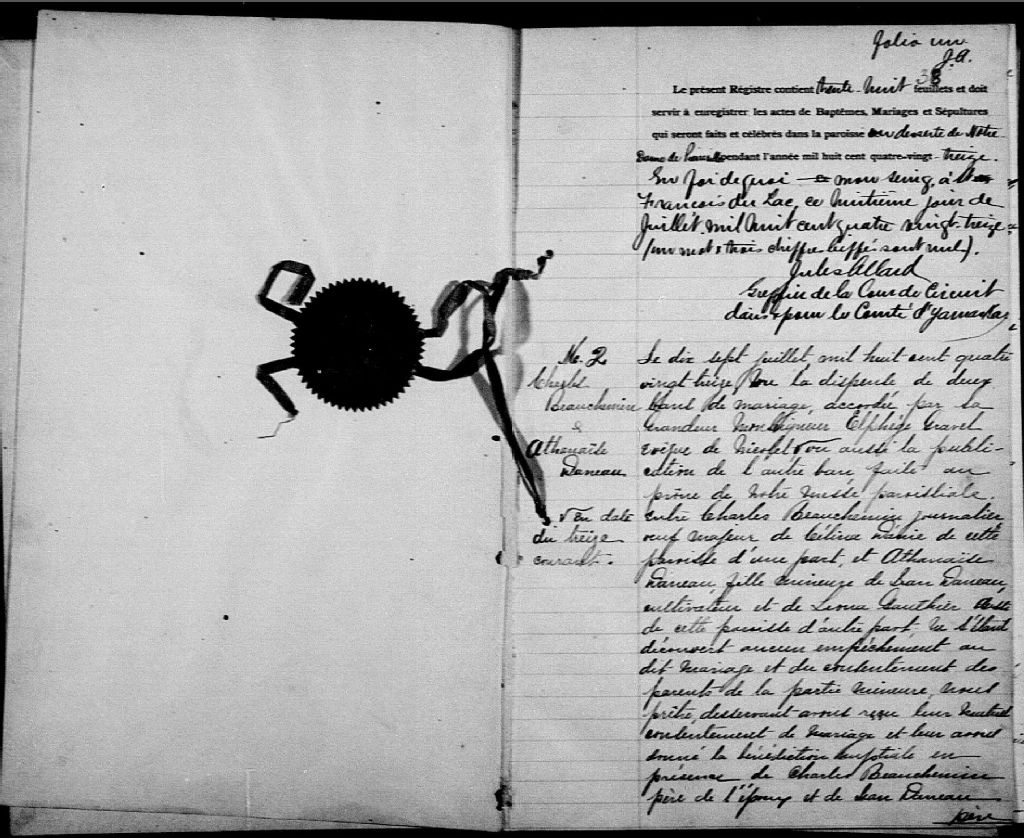 folio un
J.A.
38
Le présent Régistre contient trente-huit feuillets et doit
servir à enregistrer les actes de Baptêmes, Mariages et Sépultures
qui seront faits et célébrés dans la paroisse ou desserte de Notre
Dame de pendant l'année mil huit cent quatre-vingt-treize.
En foi de quoi mon seing, à St
François du Lac, ce huitième jour de
Juillet mil huit cent quatre vingt-treize
(un mot & trois chiffres biffés sont nul).
Jules Allard
Greffier de la Cour de Circuit
dans & pour le Comté d'Yamaska
No. 2
Charles
Beauchemin
&
Athanaïde
Daneau
√ en date
du treize
courant.
Le dix sept juillet mil huit cent quatre
vingt treize, vu la dispense de deux
bans de mariage, accordée par sa
Grandeur Monseigneur Elphège Gravel
évêque de Nicolet √ vu aussi la publi-
cation de l'autre ban faite au
prône de notre messe paroissiale.
entre Charles Beauchemin journalier,
veuf majeur de Célina de cette
paroisse d'une part, et Athanaïde
Daneau, fille mineure de Jean Daneau,
cultivateur et de Gauthier aussi
de cette paroisse d'autre part, ne s'étant
découvert aucun empêchement au
dit mariage et du consentement des
parents de la partie mineure, nous
prêtre, desservant avons reçu leur mutuel
consentement de mariage et leur avons
donné la bénédiction nuptiale en
présence de Charles Beauchemin
père de l'époux et de Jean Daneau
père